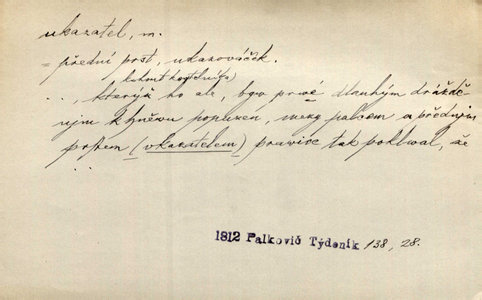 ukazatel, m.
= přední prst, ukazováček.
(kohout kostelníka)
.., kterýž ho ale, byv prvé dlauhým dráždě-
njm k hněwu popuzen, mezy palcem a přednjm
prstem (vkazatelem) prawice tak poklwal, že
...
1812 Palkovič Týdeník 138, 28.